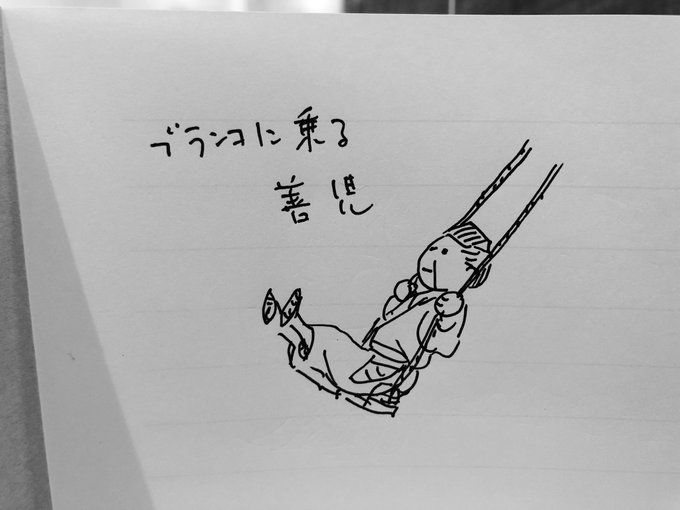 ブランコに乗る
善児